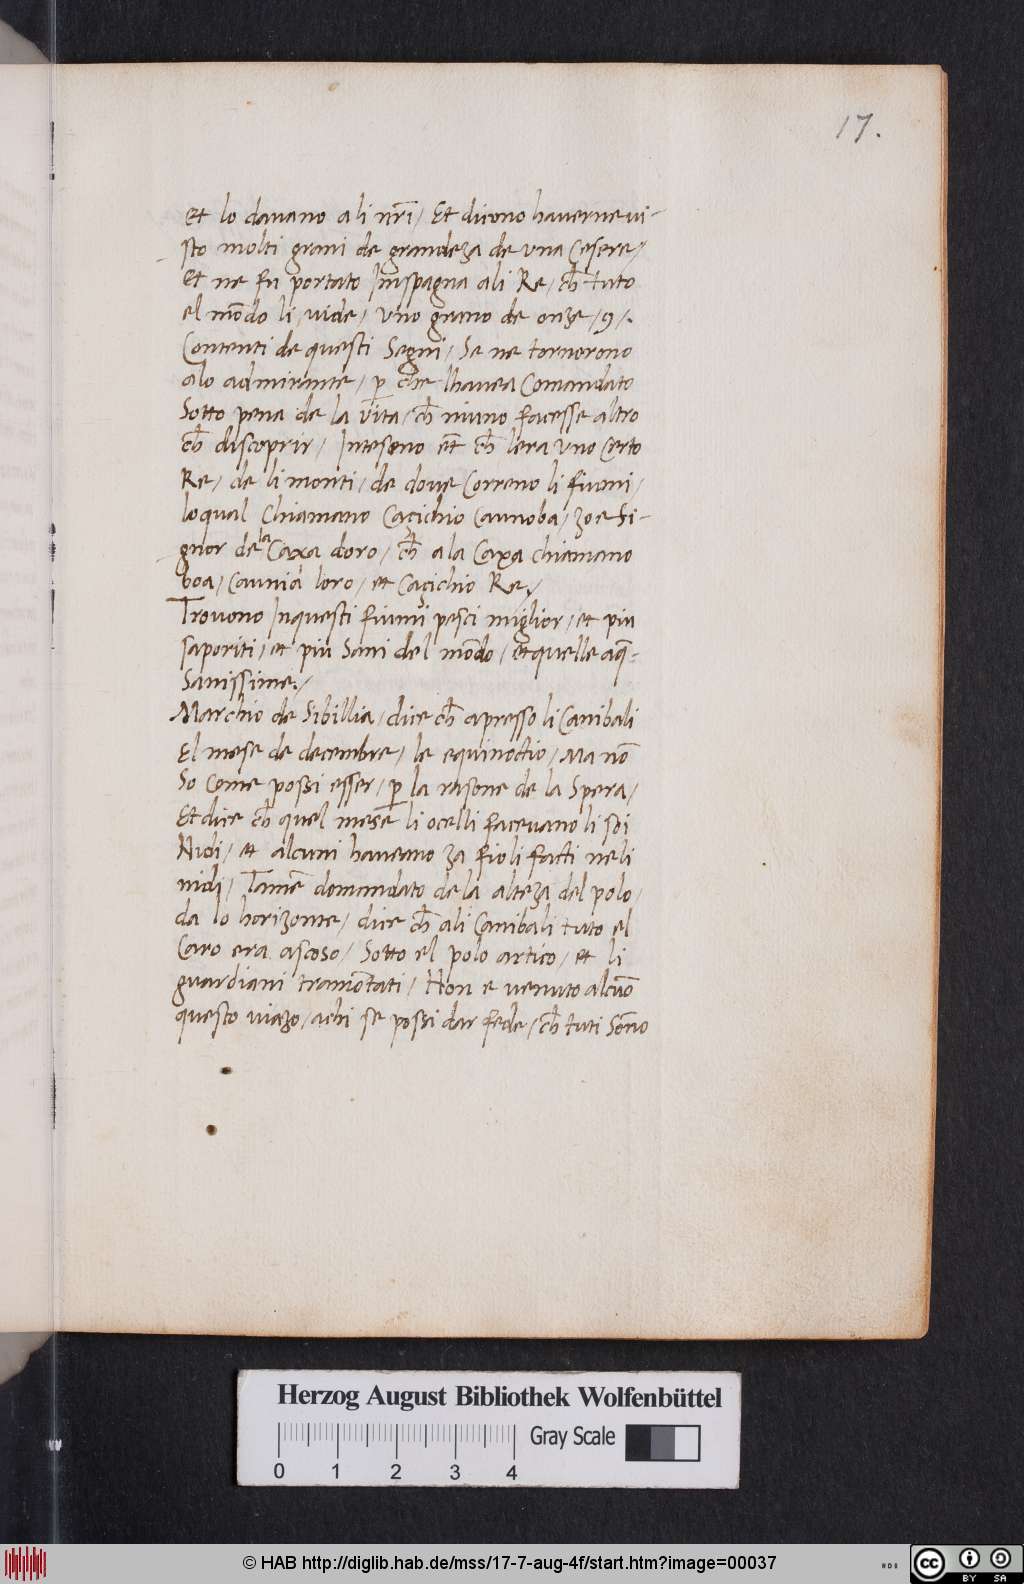 17.
Et lo davano a li nr̄i / Et dicono haverne vi-
sto molti grani de grandeza de vna Cesere /
Et ne fu portato Inispagna ali Re / ch̄ tuto
el mōdo li vide / vno grano de onze / 9 /.
Contenti de questi Segni / Se ne tornorono
alo admirante / p̱ che lhavea Comandato
Sotto pena de la vita / ch̄ niuno facesse altro
ch̄ discoprir / Inteseno et̄ ch̄ lera vno Certo
Re / de li monti / de dove Correno li fiumi /
loqual Chiamano Caçichio Caunoba / zoe Si-
gnor de la Caxa doro / ch̄ a la Caxa chiamano
boa / Cauni a loro / et Caçichio Re /
Trovono Inquesti fiumi pesci miglior / et piu
saporiti / et piu Sani del mōdo / et quelle aq̄-
Sanissime. /
Marchio de Sibillia / dice ch̄ apresso li Canibali
El mese de decembre / le equinoctio / Ma nō
So Come possi esser / p̱ la rasone de la Spera /
Et dice ch̄ quel mese li ocelli facevano li soi
Nidi / et alcuni haveano za fioli facti neli
nidi / Tamē domandato de la alteza del polo /
da lo horizonte / dice ch̄ ali Canibali tuto el
Caro era ascoso / Sotto el polo artico / et li
guardiani tramōtati / Non e venuto alcūo
questo viazo / achi se possi dar fede / ch̄ tuti Sōno
Herzog August Bibliothek Wolfenbüttel
Gray Scale
0 1 2 3 4
© HAB http://diglib.hab.de/mss/17-7-aug-4f/start.htm?image=00037
cc BY SA